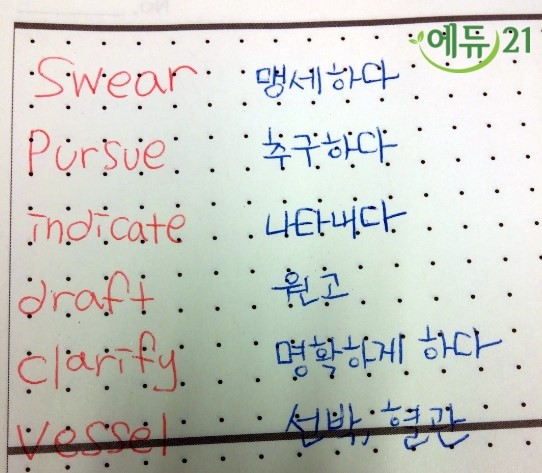 에듀21
Swear 맹세하다
Pursue 추구하다
indicate 나타내다
draft 원고
clarify 명확하게 하다
vessel 선박, 혈관